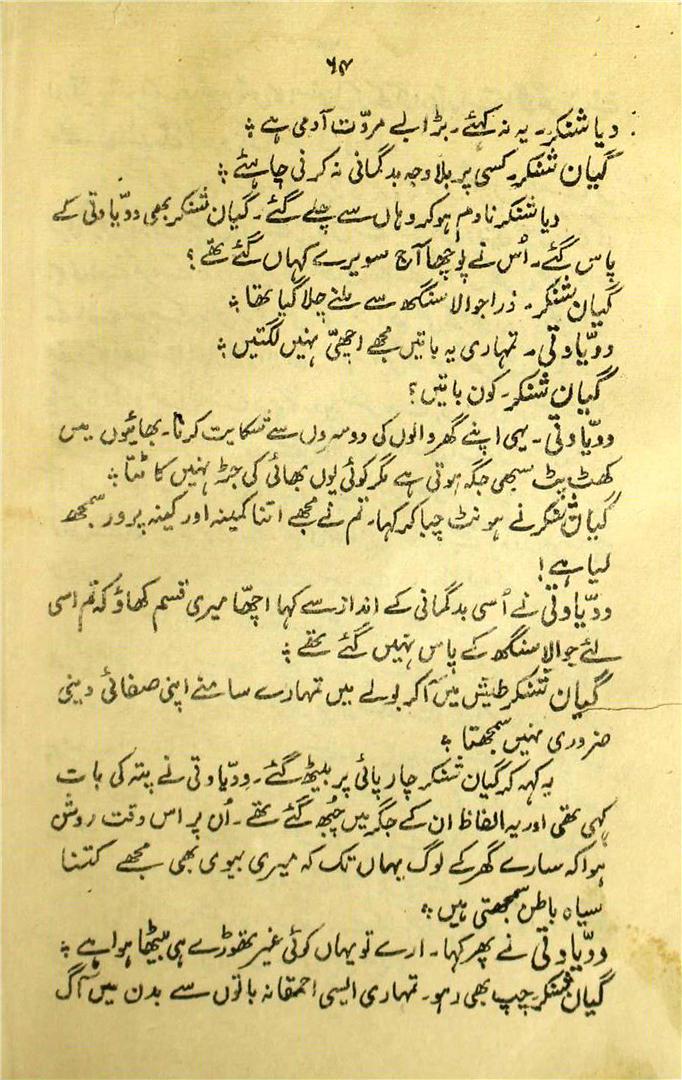 ۶۴
دیا شنکر۔ یہ نہ کہئے۔ بڑا بے مروّت آدمی ہے ؞
گیان شنکر۔ کسی پر بلا وجہ بدگمانی نہ کرنی چاہئے ؞
دیا شنکر نادم ہو کر وہاں سے چلے گئے۔ گیان شنکر بھی ودّیاوتی کے
پاس گئے۔ اُس نے پُوچھا آج سویرے کہاں گئے تھے ؟
گیان شنکر۔ ذرا جوالا سنگھ سے ملنے چلا گیا تھا ؞
ودیّاوتی۔ تمہاری یہ باتیں مجھے اچھیّ نہیں لگتیں ؞
گیان شنکر۔ کون باتیں ؟
ودیّاوتی۔ یہی اپنے گھر والوں کی دوسروں سے شکایت کرنا۔ بھائیوں میں
کھٹ پٹ سبھی جگہ ہوتی ہے مگر کوئی یوں بھائی کی جڑ نہیں کاٹتا ؞
گیان شنکر نے ہونٹ چبا کر کہا۔ تم نے مجھے اتنا کمینہ اور کینہ پرور سمجھ
لیا ہے !
ودیّاوتی نے اُسی بدگمانی کے انداز سے کہا اچھّا میری قسم کھاؤ کہ تم اسی
لئے جوالا سنگھ کے پاس نہیں گئے تھے ؞
گیان شنکر طیش میں آ کر بولے میں تمہارے سامنے اپنی صفائی دینی
ضروری نہیں سمجھتا ؞
یہ کہہ کر گیان شنکر چارپائی پر بیٹھ گئے۔ ودیّاوتی نے پتہ کی بات
کہی تھی اور یہ الفاظ ان کے جگر میں چُبھ گئے تھے۔ اُن پر اس وقت روشن
ہوا کہ سارے گھر کے لوگ یہاں تک کہ میری بیوی بھی مجھے کتنا
سیاہ باطن سمجھتی ہیں ؞
ودیّاوتی نے پھر کہا۔ ارے تو یہاں کوئی غیر تھوڑے ہی بیٹھا ہوا ہے ؞
گیان شنکر۔ چپ بھی رہو۔ تمہاری ایسی احمقانہ باتوں سے بدن میں آگ